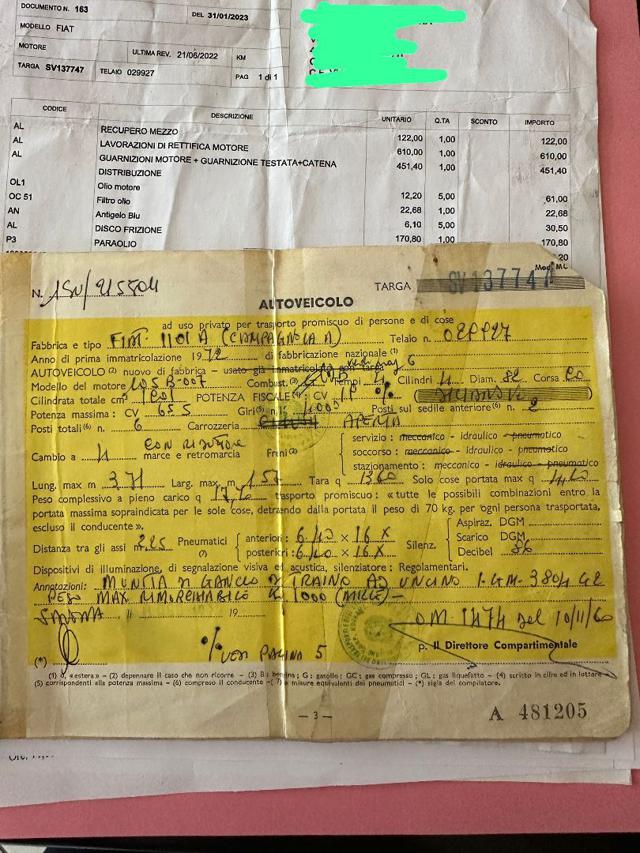 DOCUMENTO N. 163 DEL 31/01/2023
MODELLO FIAT
MOTORE ULTIMA REV. 21/06/2022 KM
TARGA SV137747 TELAIO 029927 PAG 1 di 1
CODICE DESCRIZIONE UNITARIO Q.TA SCONTO IMPORTO
AL RECUPERO MEZZO 122,00 1,00 122,00
AL LAVORAZIONI DI RETTIFICA MOTORE 610,00 1,00 610,00
AL GUARNIZIONI MOTORE + GUARNIZIONE TESTATA+CATENA 451,40 1,00 451,40
DISTRIBUZIONE
OL1 Olio motore 12,20 5,00 61,00
OC 51 Filtro olio 22,68 1,00 22,68
AN Antigelo Blu 6,10 5,00 30,50
AL DISCO FRIZIONE 170,80 1,00 170,80
P3 PARAOLIO
20
Mod. MC
N. TARGA SV137747
AUTOVEICOLO
ad uso privato per trasporto promiscuo di persone e di cose
Fabbrica e tipo FIAT 1101 A (CAMPAGNOLA A) Telaio n.
Anno di prima immatricolazione 1972 di fabbricazione nazionale (1)
AUTOVEICOLO (2) nuovo di fabbrica - usato già immatricolato
Modello del motore Combust. (3) Tempi 4 Cilindri 4 Diam. 82 Corsa
Cilindrata totale cm³ 1901 POTENZA FISCALE (4): CV
Potenza massima: CV Giri (5) Posti sul sedile anteriore (6) n. 2
Posti totali (6) n. 6 Carrozzeria APERTA
Cambio a 4 CON RIDUTTORE marce e retromarcia Freni (2)
servizio: meccanico - idraulico - pneumatico
soccorso: meccanico - idraulico - pneumatico
stazionamento: meccanico - idraulico - pneumatico
Lung. max m 3,71 Larg. max m 1,57 Tara q Solo cose portata max q
Peso complessivo a pieno carico q trasporto promiscuo: «tutte le possibili combinazioni entro la
portata massima sopraindicata per le sole cose, detraendo dalla portata il peso di 70 kg. per ogni persona trasportata,
escluso il conducente».
Distanza tra gli assi m 2.25 Pneumatici (7)
anteriori: 6/40 × 16 X
posteriori: 6/40 × 16 X
Silenz.
Aspiraz. DGM
Scarico DGM
Decibel 86
Dispositivi di illuminazione, di segnalazione visiva ed acustica, silenziatore: Regolamentari.
Annotazioni: MUNITA DI GANCIO DI TRAINO AD UNCINO
PESO MAX RIMORCHIABILE K 1000 (MILLE) —
SAVONA 19 DM. 1474 del 10/11/60
p. Il Direttore Compartimentale
(*) VEDI PAGINA 5
(1) o, «estera» - (2) depennare il caso che non ricorre - (3) B: benzina; G: gasolio; GC: gas compresso; GL: gas liquefatto - (4) scritto in cifre ed in lettere -
(5) corrispondenti alla potenza massima - (6) compreso il conducente - (7) a misure equivalenti dei pneumatici - (*) sigla del compilatore.
— 3 —
A 481205